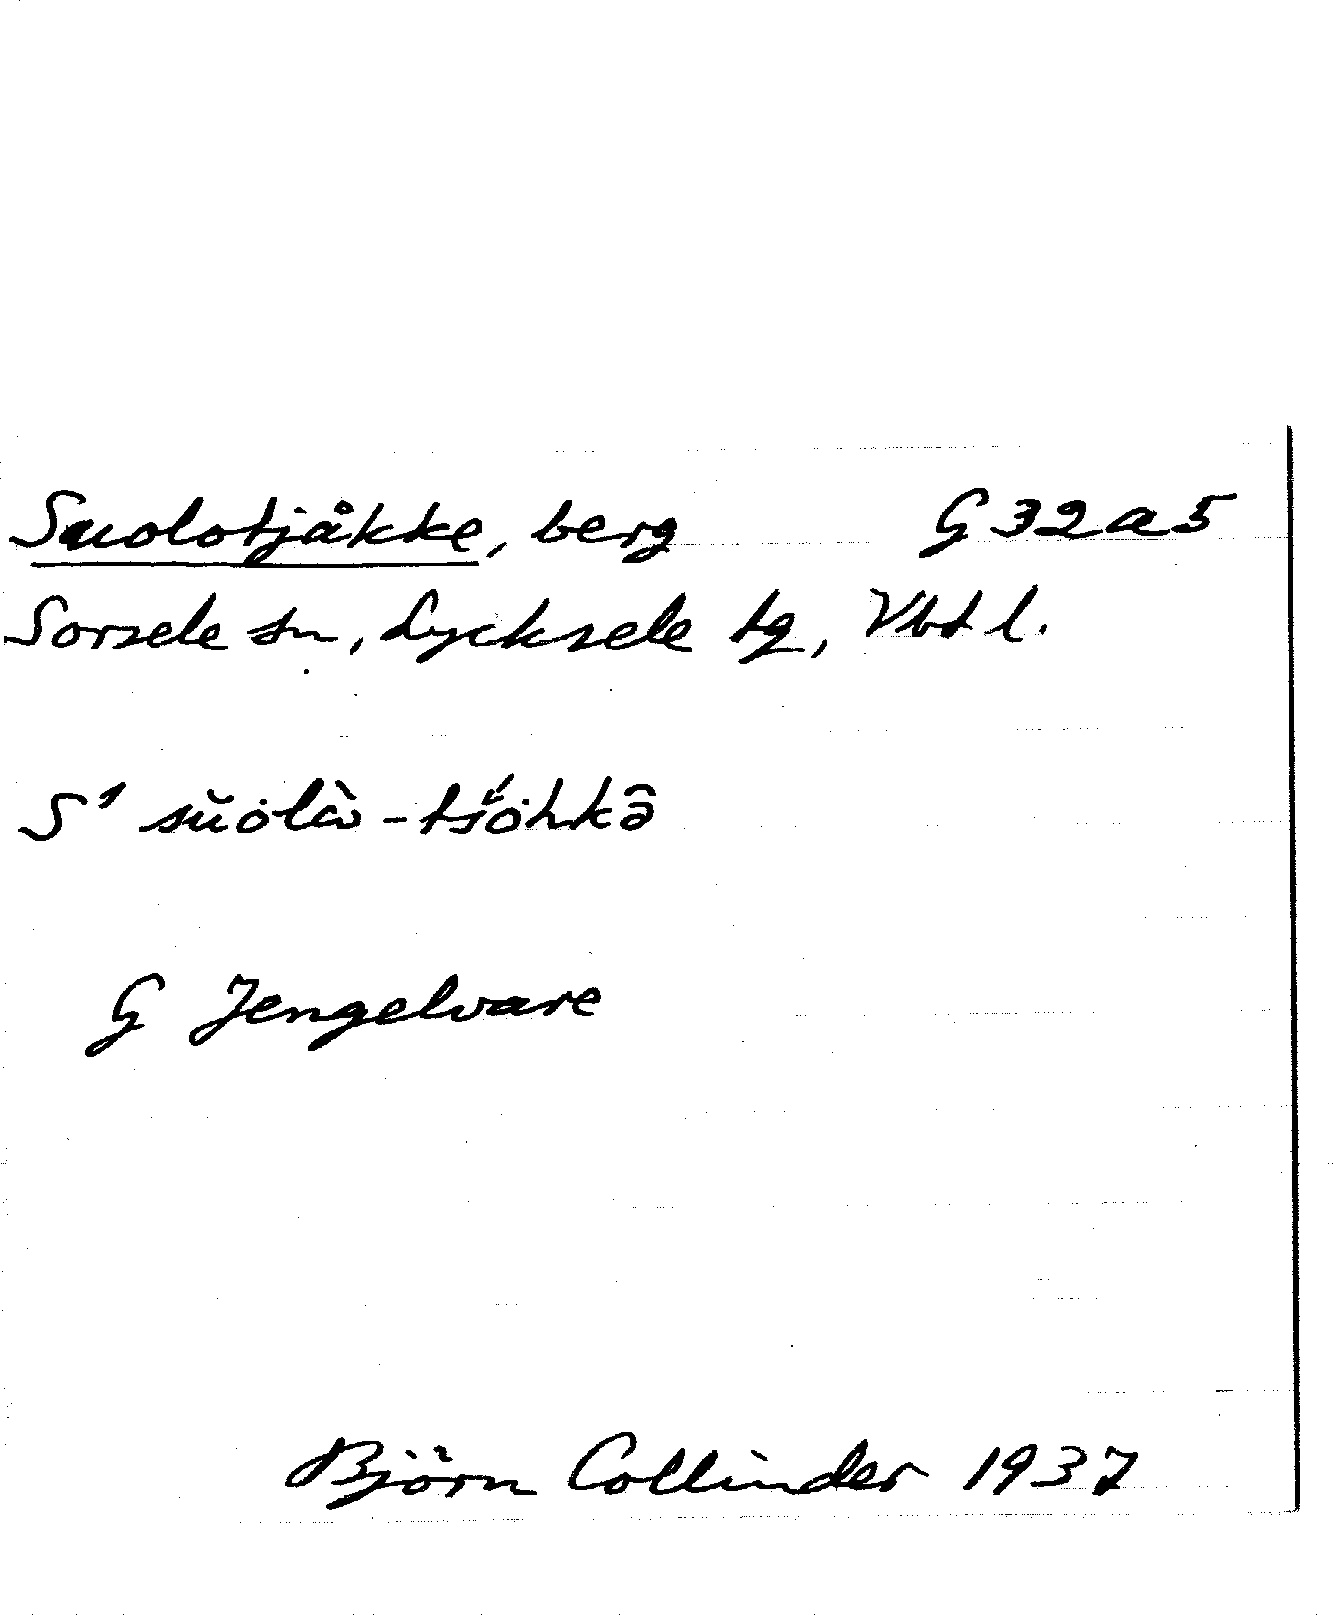 Suolotjåkke, berg G 32 a 5
Sorsele sn, Lycksele tg, Vbt l.
S¹ sŭȯlὼ-tśȯ́hkə̂
G Jengelvare
Björn Collinder 1937